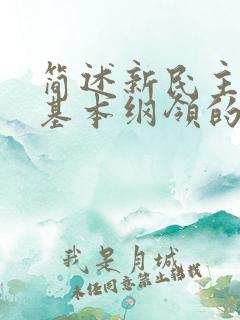 简述新民主
基本纲领的
我是月城
未经同意禁止转载